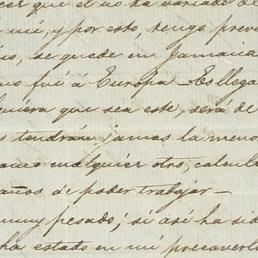 cer que el no ha variado de
mi, y por esto, tengo prev
se quede en Jamaica
no fué á Europa. Es llega
quiera que sea este, será de
s tendrán jamas la meno
como cualquier otro, calcula
años de poder trabajar—
muy pesado; si asi ha sid
ha estado en mi precaverlo